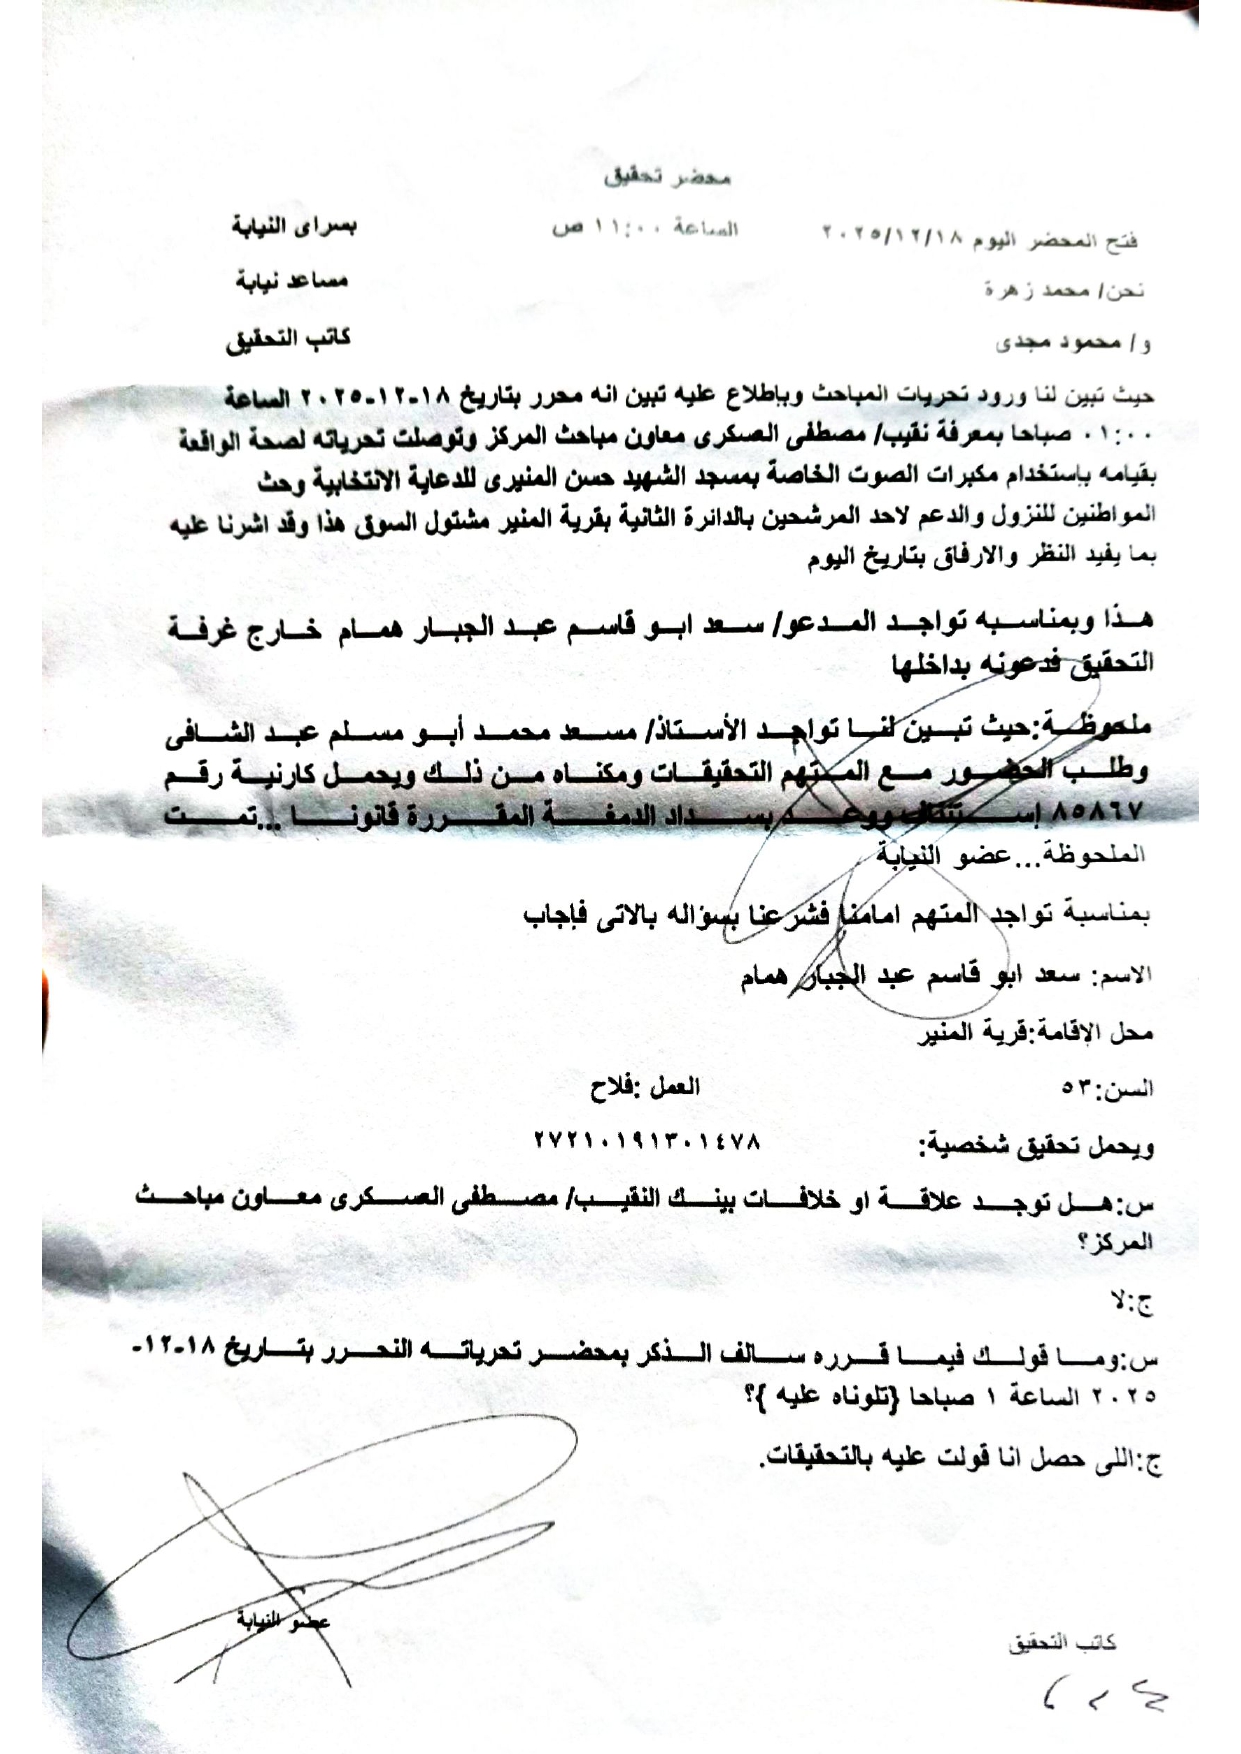 محضر تحقيق
فتح المحضر اليوم ٢٠٢٥/١٢/١٨ الساعة ١١:٠٠ ص بسراى النيابة
نحن/ محمد زهرة مساعد نيابة
و/ محمود مجدى كاتب التحقيق
حيث تبين لنا ورود تحريات المباحث وبإطلاع عليه تبين انه محرر بتاريخ ١٨-١٢-٢٠٢٥ الساعة
٠١:٠٠ صباحا بمعرفة نقيب/ مصطفى العسكرى معاون مباحث المركز وتوصلت تحرياته لصحة الواقعة
بقيامه بإستخدام مكبرات الصوت الخاصة بمسجد الشهيد حسن المنيرى للدعاية الانتخابية وحث
المواطنين للنزول والدعم لاحد المرشحين بالدائرة الثانية بقرية المنير مشتول السوق هذا وقد اشرنا عليه
بما يفيد النظر والارفاق بتاريخ اليوم
هذا وبمناسبه تواجد المدعو/ سعد ابو قاسم عبد الجبار همام خارج غرفة
التحقيق فدعونه بداخلها
ملحوظة:حيث تبين لنا تواجد الأستاذ/ مسعد محمد أبو مسلم عبد الشافى
وطلب الحضور مع المتهم التحقيقات ومكناه من ذلك ويحمل كارنية رقم
٨٥٨٦٧ إستئناف ووعد بسداد الدمغة المقررة قانونا ...تمت
الملحوظة...عضو النيابة
بمناسبة تواجد المتهم امامنا فشرعنا بسؤاله بالاتى فإجاب
الاسم: سعد ابو قاسم عبد الجبار همام
محل الإقامة:قرية المنير
السن:٥٣ العمل :فلاح
ويحمل تحقيق شخصية: ٢٧٢١٠١٩١٣٠١٤٧٨
س:هل توجد علاقة او خلافات بينك النقيب/ مصطفى العسكرى معاون مباحث
المركز؟
ج:لا
س:وما قولك فيما قرره سالف الذكر بمحضر تحرياته النحرر بتاريخ ١٨-١٢-
٢٠٢٥ الساعة ١ صباحا {تلوناه عليه }؟
ج:اللى حصل انا قولت عليه بالتحقيقات.
عضو النيابة
كاتب التحقيق